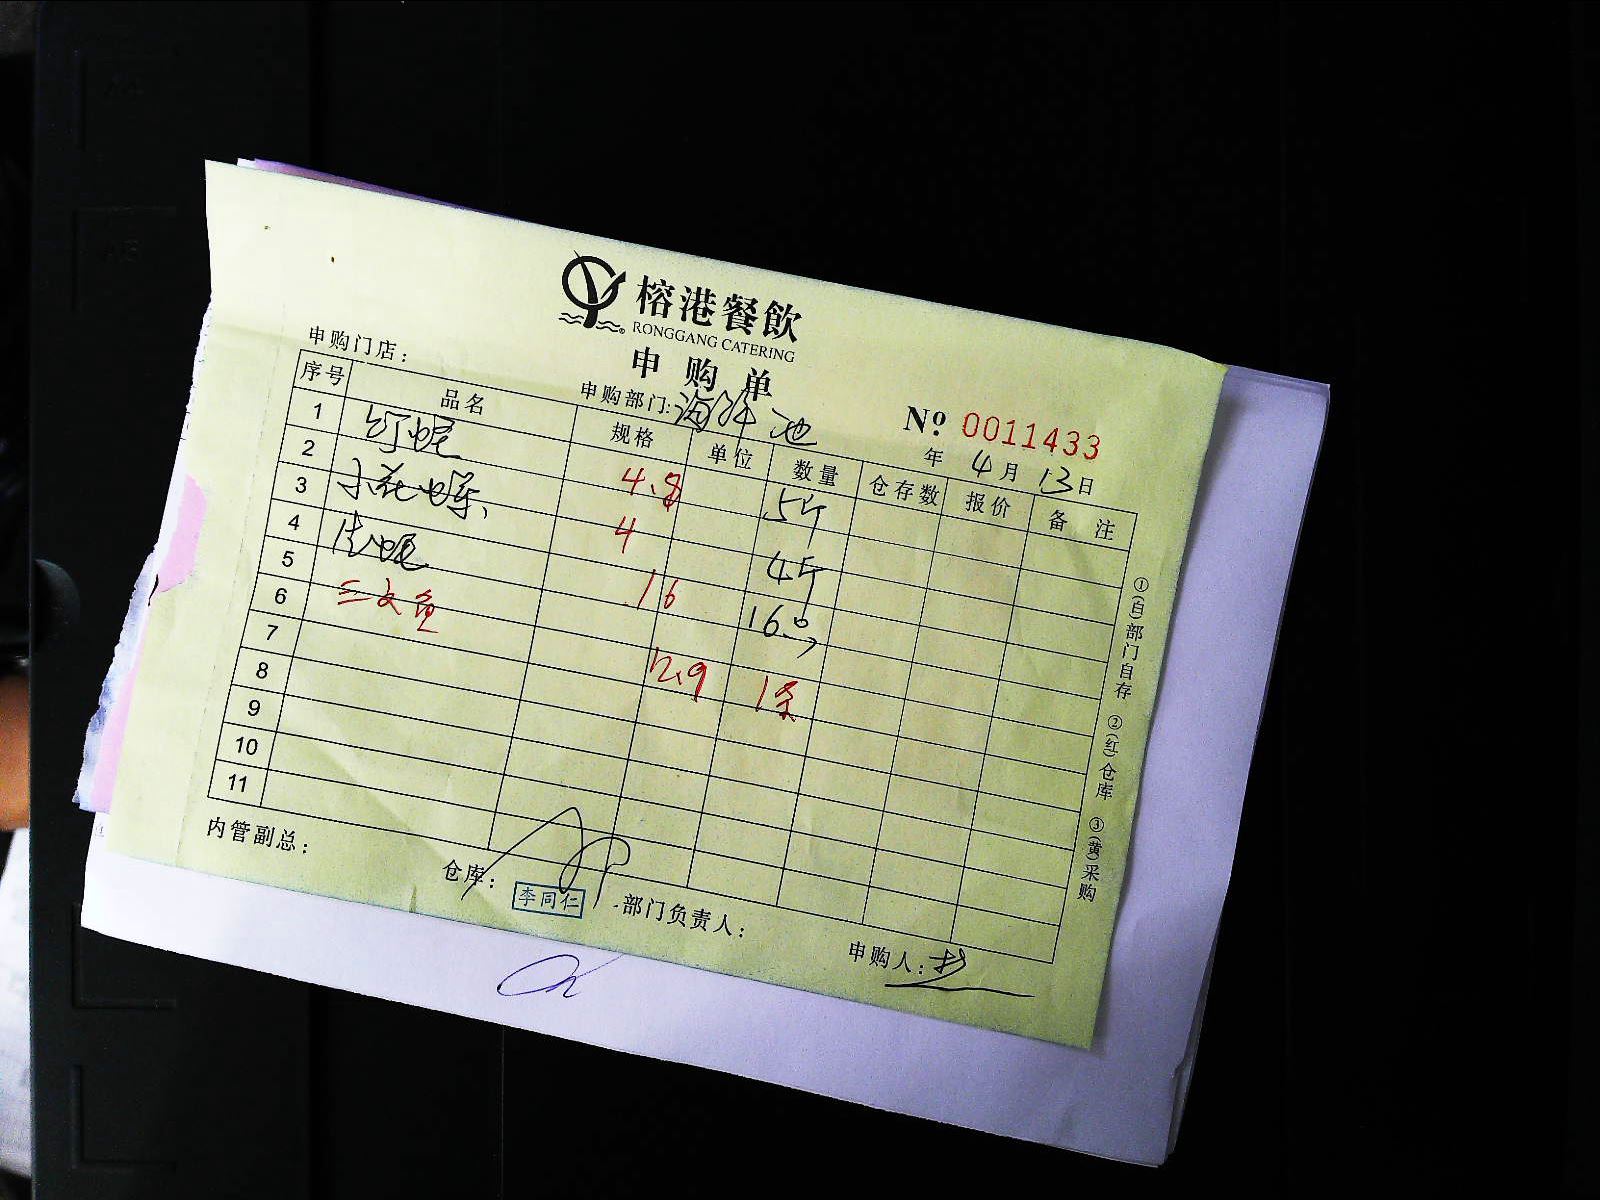 榕港餐飲
RONGGANG CATERING
申购单
申购门店：
申购部门：海鲜池
№ 0011433
年 4月 13日
序号 品名 规格 单位 数量 仓存数 报价 备注
1 红呢 4.8 5斤
2 小花螺 4 4斤
3 16 16只
4 三文鱼 12.9 1条
5
6
7
8
9
10
11
①(白)部门自存 ②(红)仓库 ③(黄)采购
内管副总：
仓库：
李同仁
部门负责人：
申购人：